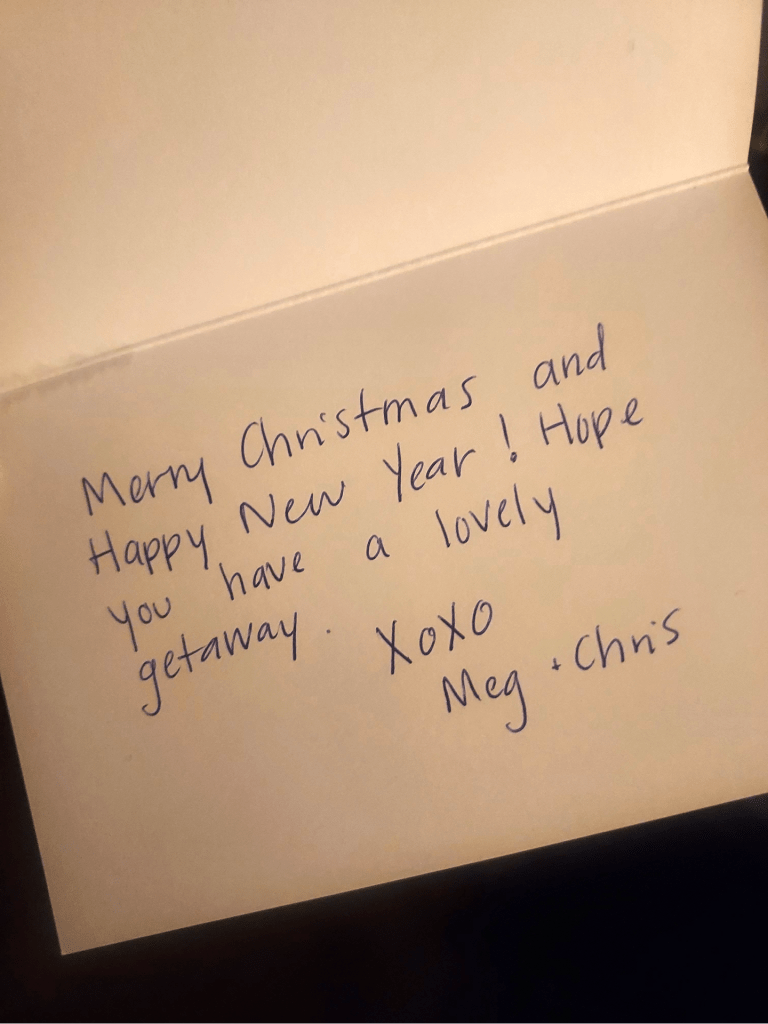 Merry Christmas and
Happy New Year! Hope
you have a lovely
getaway. XOXO
Meg + Chris